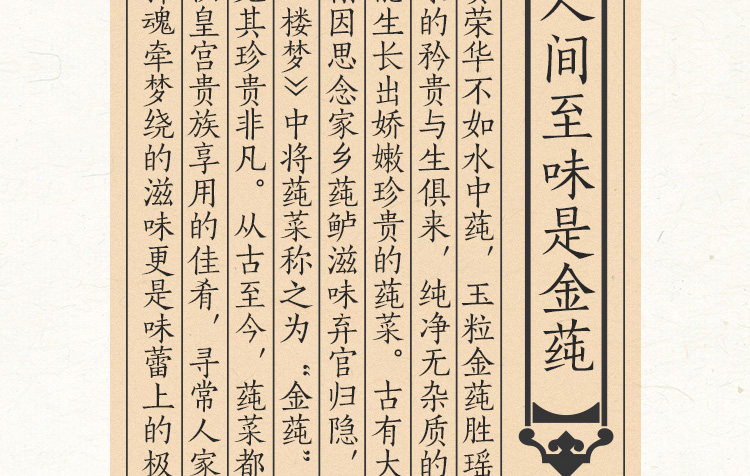 人间至味是金莼
荣华不如水中莼，玉粒金莼胜瑶
的矜贵与生俱来，纯净无杂质的
生长出娇嫩珍贵的莼菜。古有大
因思念家乡莼鲈滋味弃官归隐，
楼梦》中将莼菜称之为“金莼”
其珍贵非凡。从古至今，莼菜都
皇宫贵族享用的佳肴，寻常人家
魂牵梦绕的滋味更是味蕾上的极